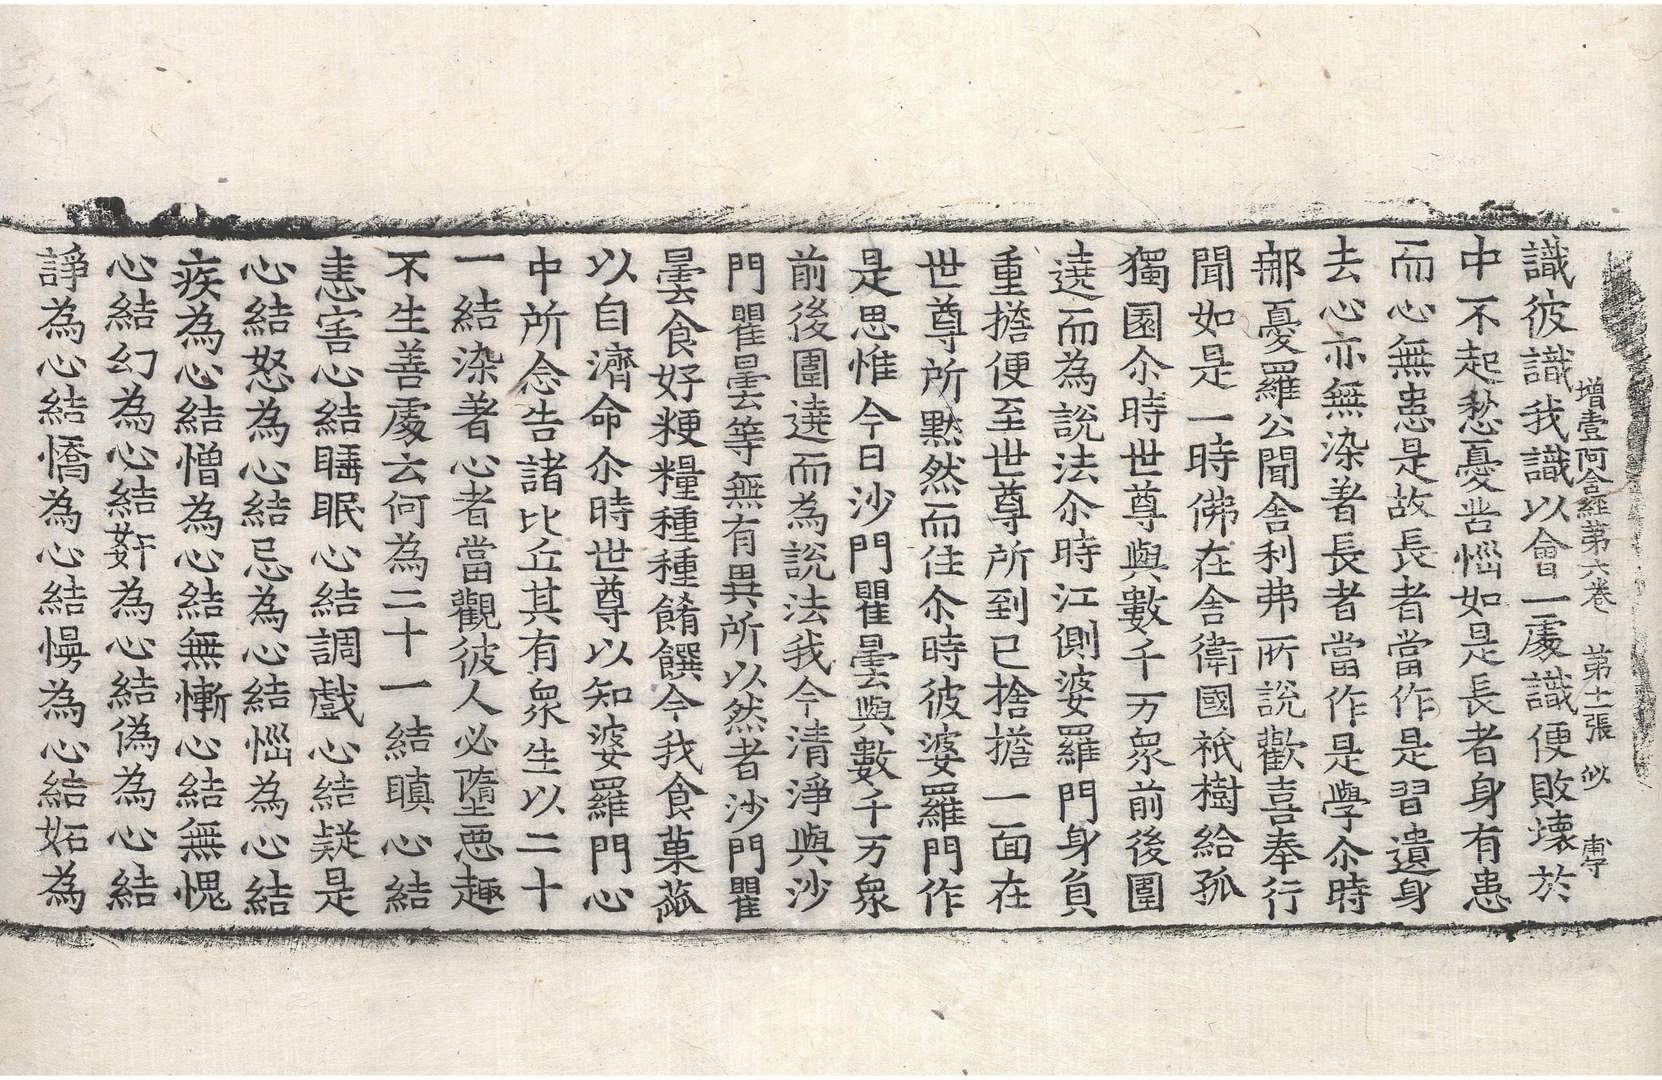 增壹阿含經第六卷　第十二張　似
識彼識我識以會一處識便敗壞於
中不起愁憂苦惱如是長者身有患
而心無患是故長者當作是習遺身
去心亦無染著長者當作是學尒時
那憂羅公聞舍利弗所說歡喜奉行
聞如是一時佛在舍衛國祇樹給孤
獨園尒時世尊與數千万衆前後圍
遶而為說法尒時江側婆羅門身負
重擔便至世尊所到已捨擔一面在
世尊所默然而住尒時彼婆羅門作
是思惟今日沙門瞿曇與數千万衆
前後圍遶而為說法我今清淨與沙
門瞿曇等無有異所以然者沙門瞿
曇食好粳糧種種餚饌今我食菓蓏
以自濟命尒時世尊以知婆羅門心
中所念告諸比丘其有衆生以二十
一結染著心者當觀彼人必墮惡趣
不生善處云何為二十一結瞋心結
恚害心結睡眠心結調戲心結疑是
心結怒為心結忌為心結惱為心結
疾為心結憎為心結無慚心結無愧
心結幻為心結姧為心結偽為心結
諍為心結憍為心結慢為心結妬為